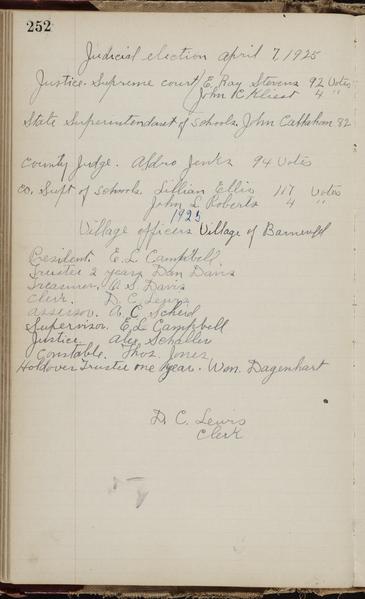 252
Judicial election April 7, 1925
Justice. Supreme court E. Ray Stevens 92 Votes
John K Kleist 4 "
State Superintendant of schools. John Callahan 82
County Judge. Aldro Jenks 94 Votes
Co. Supt of schools. Lillian Ellis 117 Votes
John L Roberts 4 "
1925
Village officers Village of Barneveld
President. E. L. Campbell.
Trustee 2 years Dan Davis
Treasurer. A. S. Davis
Clerk. D. C. Lewis
Assessor. A. C. Scheid
Supervisor. E L Campbell
Justice Alex Schaller
Constable. Thos. Jones
Holdover Trustee one year. Wm. Dagenhart
D. C. Lewis
Clerk